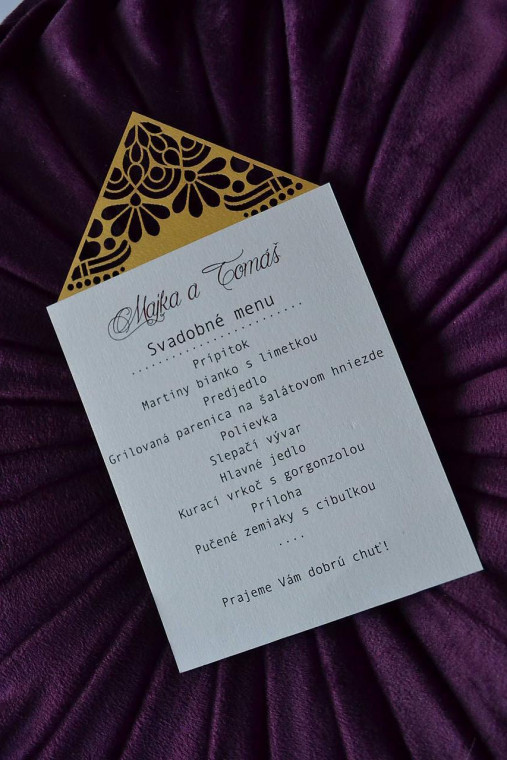 Majka a Tomáš
Svadobné menu
........................
Prípitok
Martiny bianko s limetkou
Predjedlo
Grilovaná parenica na šalátovom hniezde
Polievka
Slepačí vývar
Hlavné jedlo
Kurací vrkoč s gorgonzolou
Príloha
Pučené zemiaky s cibuľkou
....
Prajeme Vám dobrú chuť!